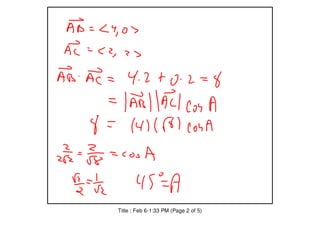 AB = <4,0>
AC = <2, 2>
AB · AC = 4·2 + 0·2 = 8
= |AB||AC| cos A
8 = (4)(√8) cos A
2/2√2 = 2/√8 = cos A
√2/2 = 1/√2 45° = A
Title : Feb 6-1:33 PM (Page 2 of 5)